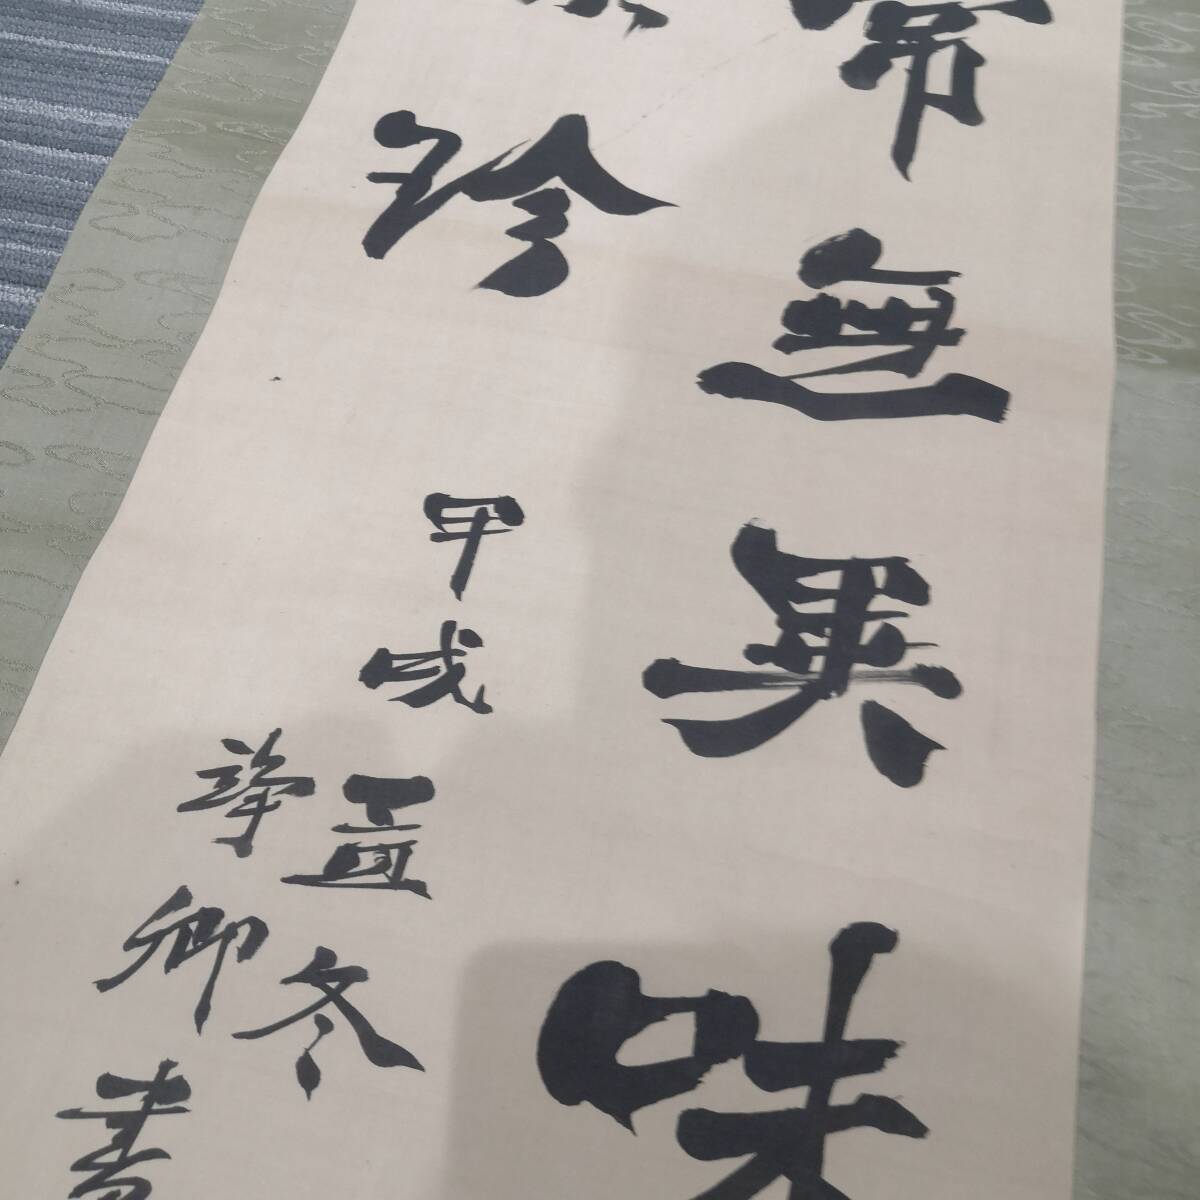 常無異味
珍
甲戌孟冬
諍卿書